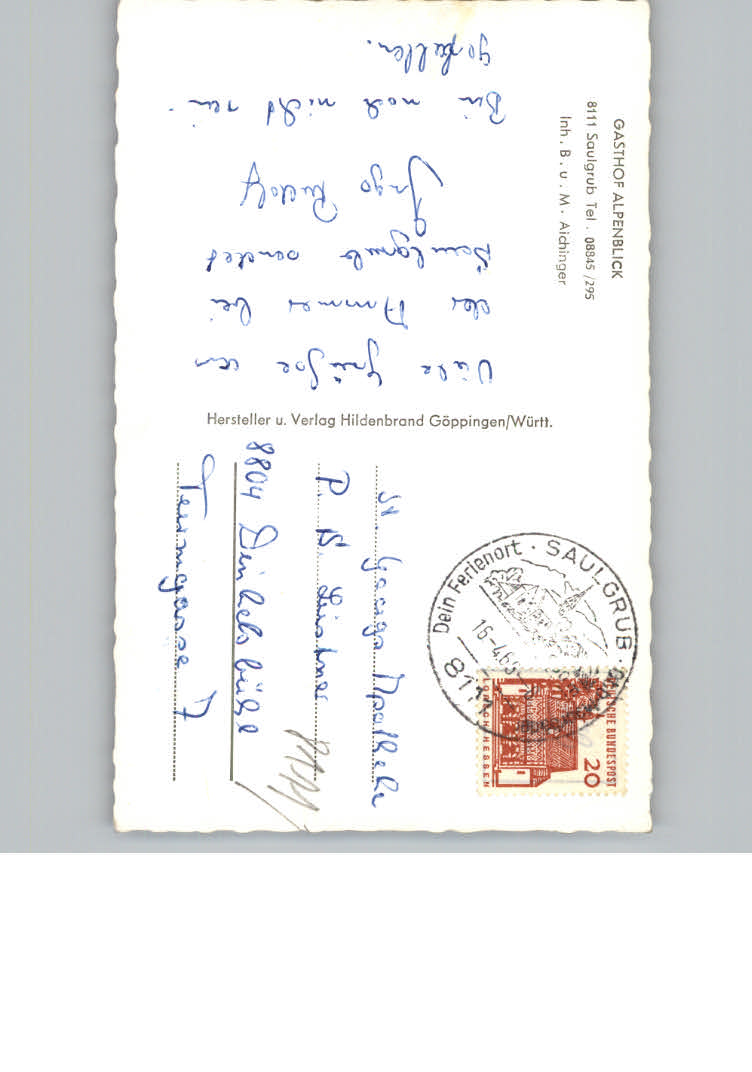 GASTHOF ALPENBLICK
8111 Saulgrub Tel. 08845/295
Inh. B. u. M. Aichinger
Viele Grüße von
der Ammer bei
Saulgrub sendet
Ingo Rudolf
Bin noch nicht rein
gefallen.
Hersteller u. Verlag Hildenbrand Göppingen/Württ.
Dein Ferienort · SAULGRUB
16-4.6
8111
DEUTSCHE BUNDESPOST
20
LORSCH HESSEN
St. Georgs Apotheke
P. B. Lindner
8804 Dinkelsbühl
Turmgasse 7